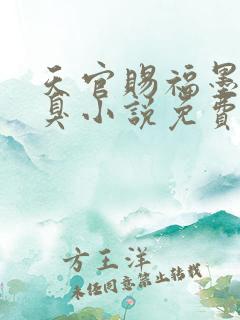 天官赐福墨
真小说免费
方王洋
未经同意禁止转载